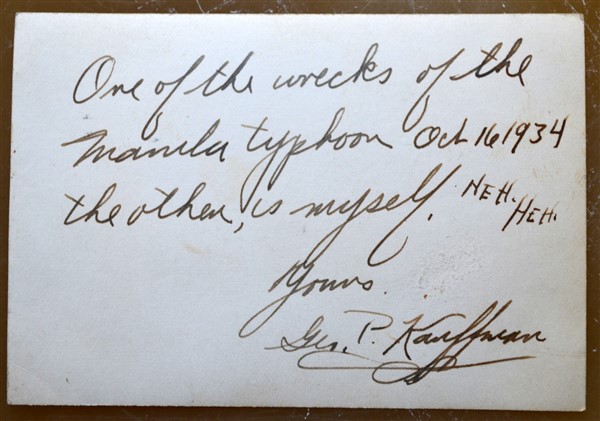 One of the wrecks of the
Manila typhoon Oct 16 1934
the other, is myself. HEH. HEH.
Yours.
Geo. P. Kauffman